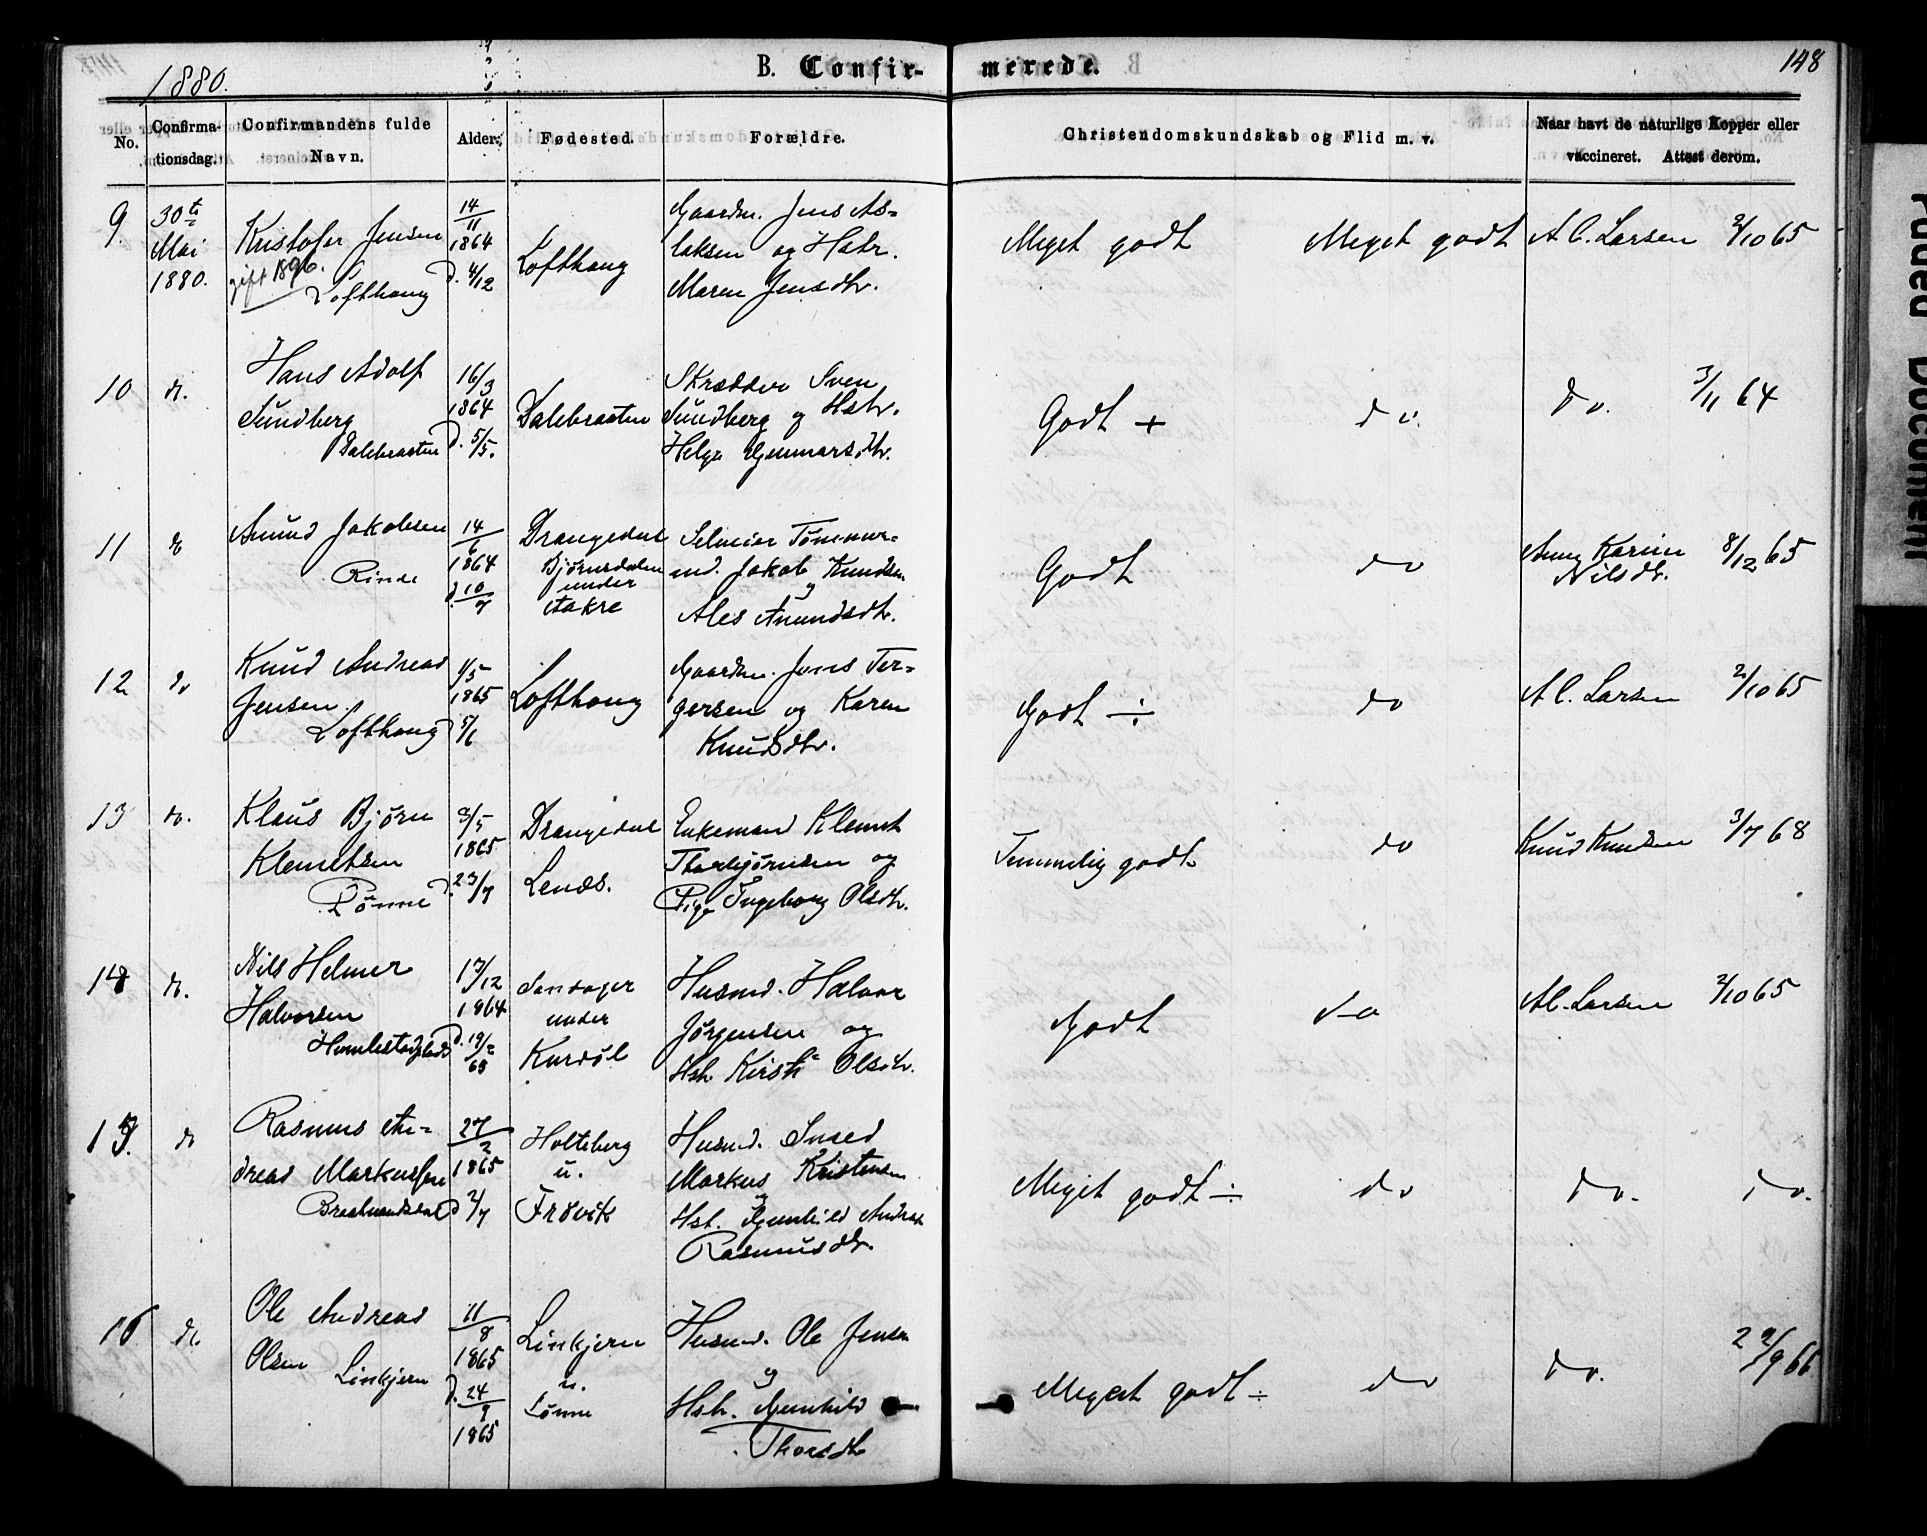 1880.
B. Confir-
merede.
148
No.
Confirma-
tionsdag.
Confirmandens fulde
Navn.
Alder.
Fødested.
Forældre.
Christendomskundskab og Flid m. v.
Naar havt de naturlige Kopper eller
vaccineret. Attest derom.
9.
30te
Mai
1880.
Kristofer Jensen
gift 1896.
Lofthaug
14/11
1864
D. 4/12
Lofthaug
Gaardm. Jens As-
laksen og Hstr.
Maren Jensdtr.
Meget godt
Meget godt
A C. Larsen 2/10 65
10
do.
Hans Adolf
Sundberg
Dalebraaten
16/3
1864
D. 5/5.
Dalebraaten
Skrædder Sven
Sundberg og Hstr.
Helge Gunmarsdtr.
Godt +
do.
do. 3/11 64
11
do
Anund Jakobsen
Rinde
14/6
1864
D. 10/7
Drangedal
Bjørnsdalen
under
Aakre
Selveier Tømmer-
md. Jakob Knudsen
og
Ales Anundsdtr.
Godt
do
Anne Karine
Nilsdtr. 8/12 65
12
do
Knud Andreas
Jensen
Lofthaug
1/5
1865
D 5/6
Lofthaug
Gaardm. Jens Ter-
gersen og Karen
Knudsdtr.
Godt ÷
do
A C. Larsen 2/10 65
13
do.
Klaus Bjørn
Klemetsen
Rønne
8/5
1865
D. 23/7
Drangedal
Lends.
Enkemand Klemet
Thorbjørnsen og
Pige Ingeborg Olsdtr.
Temmelig godt
do
Knud Knudsen 3/7 68
14
do.
Nils Helmer
Halvorsen
Humlestadplads
13/12
1864
D. 19/2
65
Sandager
under
Kurdøl
Husmd. Halvor
Jørgensen og
Hst. Kirsti Olsdtr.
Godt
do
A C. Larsen 2/10 65
15.
do
Rasmus An-
dreas Markussen
27/2
1865
D 2/7
Holteberg
u.
Frøvik
Husmd. Insed
Markus Kristensen
og
Hst. Gunhild Andrea
Rasmusdtr.
Meget godt ÷
do
do.
do.
16
do.
Ole Andreas
Olsen
Linkjern
11/8
1865
D. 24/9
1865
Linkjern
u.
Lønne
Husmd. Ole Jensen
og
Hst. Gunhild
Thorsdtr
Meget godt ÷
do
do.
22/9 66